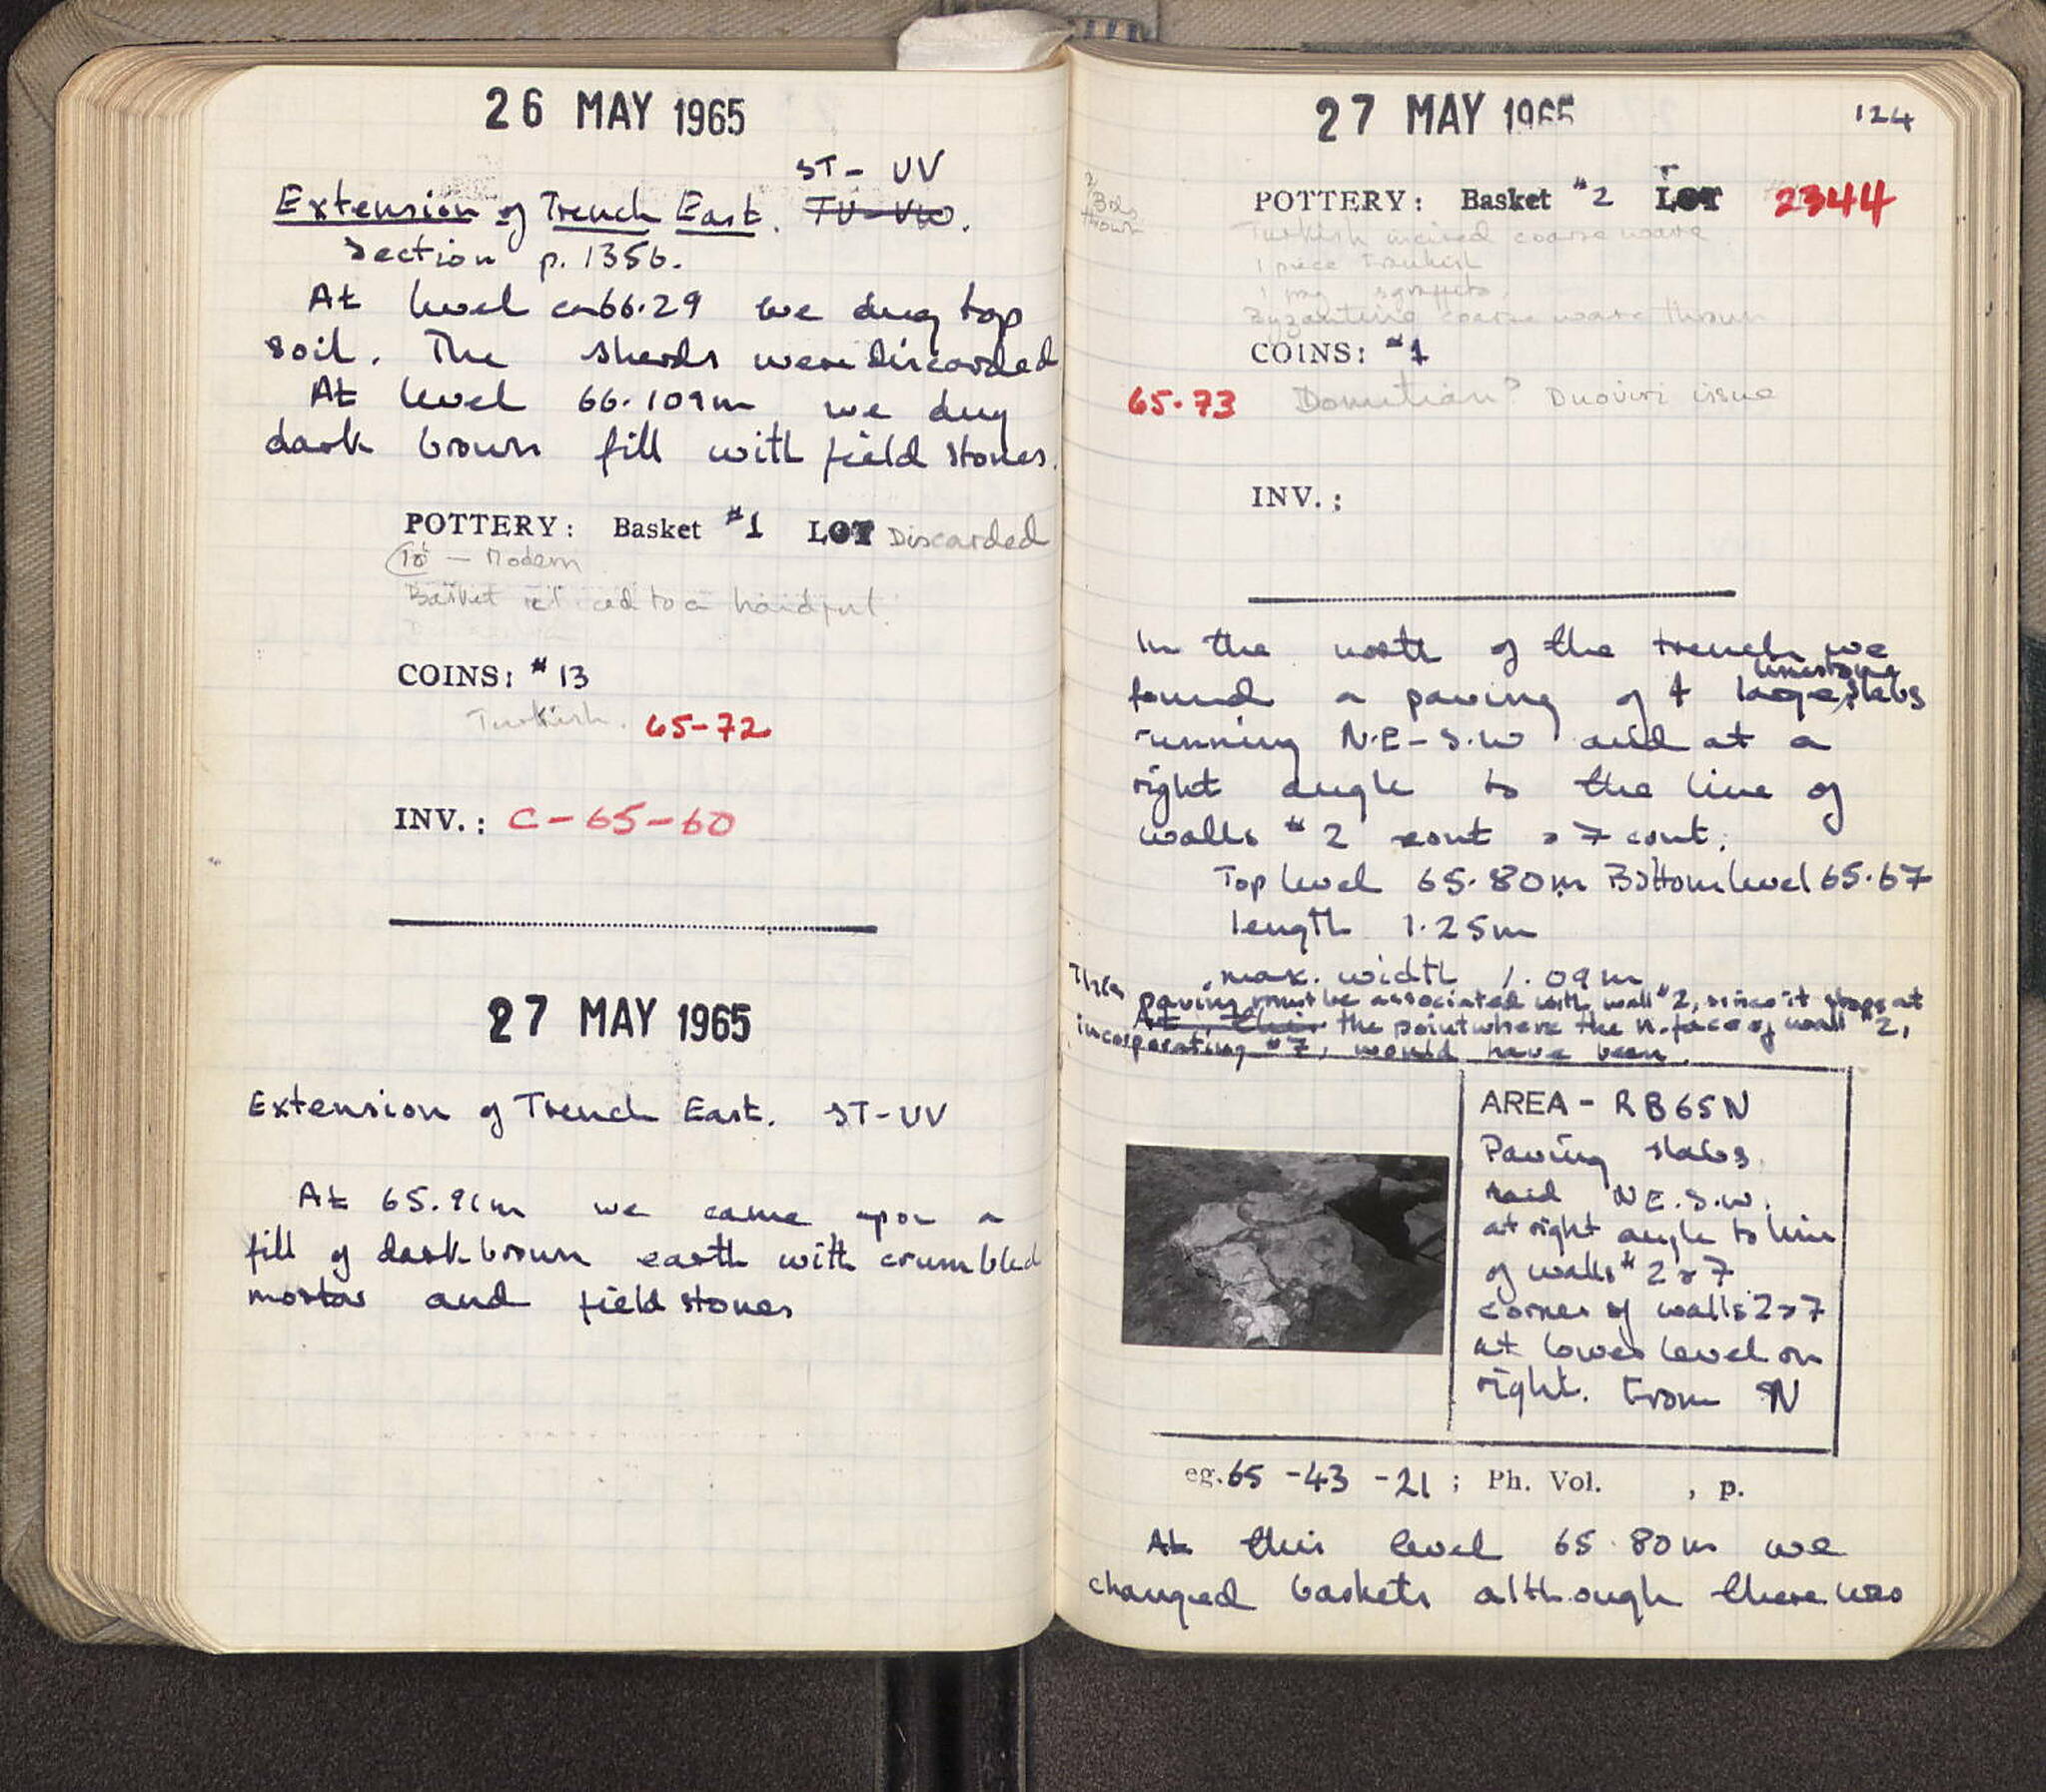 26 MAY 1965
ST - UV
Extension of Trench East. TU-VW.
Section p. 135b.
At level ca 66.29 we dug top
soil. The sherds were discarded
At level 66.109m we dug
dark brown fill with field stones.
POTTERY: Basket #1 LOT Discarded
— Modern
Basket reduced to a handful.
COINS: #13
Turkish. 65-72
INV.: C-65-60
27 MAY 1965
Extension of Trench East. ST-UV
At 65.91m we came upon a
fill of dark brown earth with crumbled
mortar and field stones
27 MAY 1965
124
POTTERY: Basket #2 LOT 2344
thrown
Turkish incised coarse ware
1 piece Frankish
1 frag sgraffito.
Byzantine coarse ware thrown
COINS: #1
65-73 Domitian? Duoviri issue
INV.:
In the north of the trench we
limestone
found a paving of 4 large slabs
running N.E-S.W and at a
right angle to the line of
walls #2 cont & 7 cont.
Top level 65.80m Bottom level 65.67
length 1.25m
max. width 1.09m
This paving must be associated with wall #2, since it stops at
At this the point where the N. face of wall #2,
incorporating #7, would have been.
AREA - RB65N
Paving slabs
laid NE.S.W.
at right angle to line
of walls #2 & 7
corner of walls 2 & 7
at lower level on
right. From N
eg. 65 - 43 - 21 ; Ph. Vol. , p.
At this level 65.80m we
changed baskets although there was